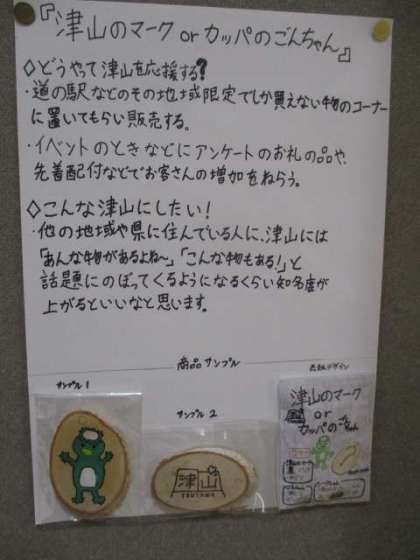 『津山のマーク or カッパのごんちゃん』
◇どうやって津山を応援する?
・道の駅などのその地域限定でしか買えない物のコーナー
に置いてもらい販売する。
・イベントのときなどにアンケートのお礼の品や、
先着配付などでお客さんの増加をねらう。
◇こんな津山にしたい!
・他の地域や県に住んでいる人に、津山には
「あんな物があるよね〜」「こんな物もある!」と
話題にのぼってくるようになるくらい知名度が
上がるといいなと思います。
商品サンプル
サンプル1
サンプル2
津山
TSUYAMA
デザイン
津山のマーク
or
カッパのごんちゃん